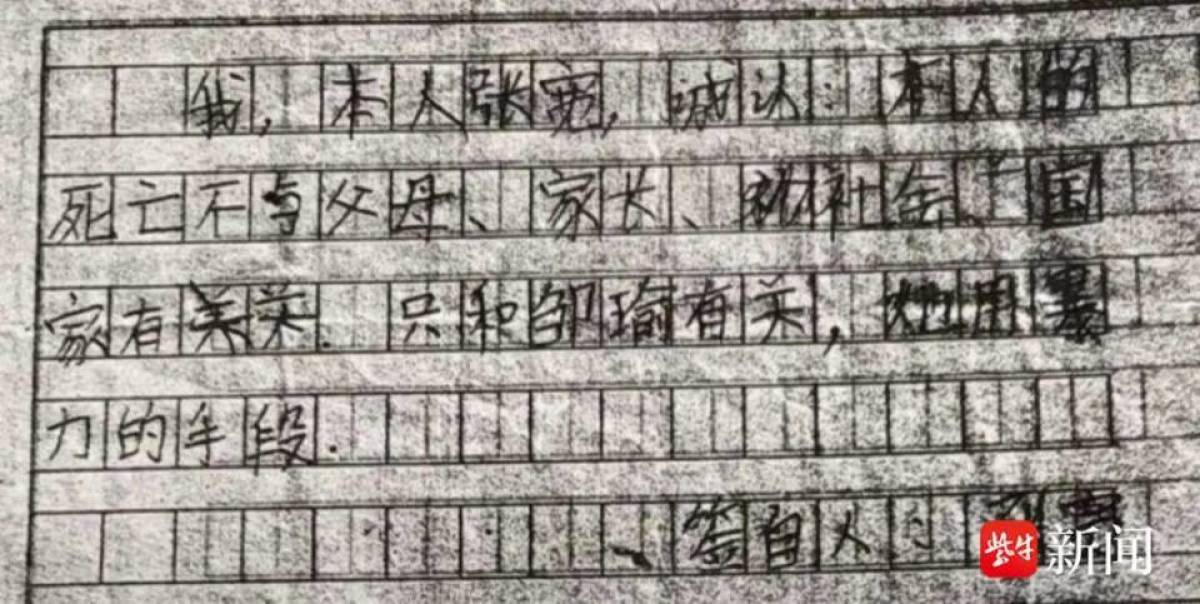 我，本人张宽，诚认：本人的
死亡不与父母、家长、社会、国
家有关. 只和邹瑜有关，她用暴
力的手段.
签自人：
紫牛新闻